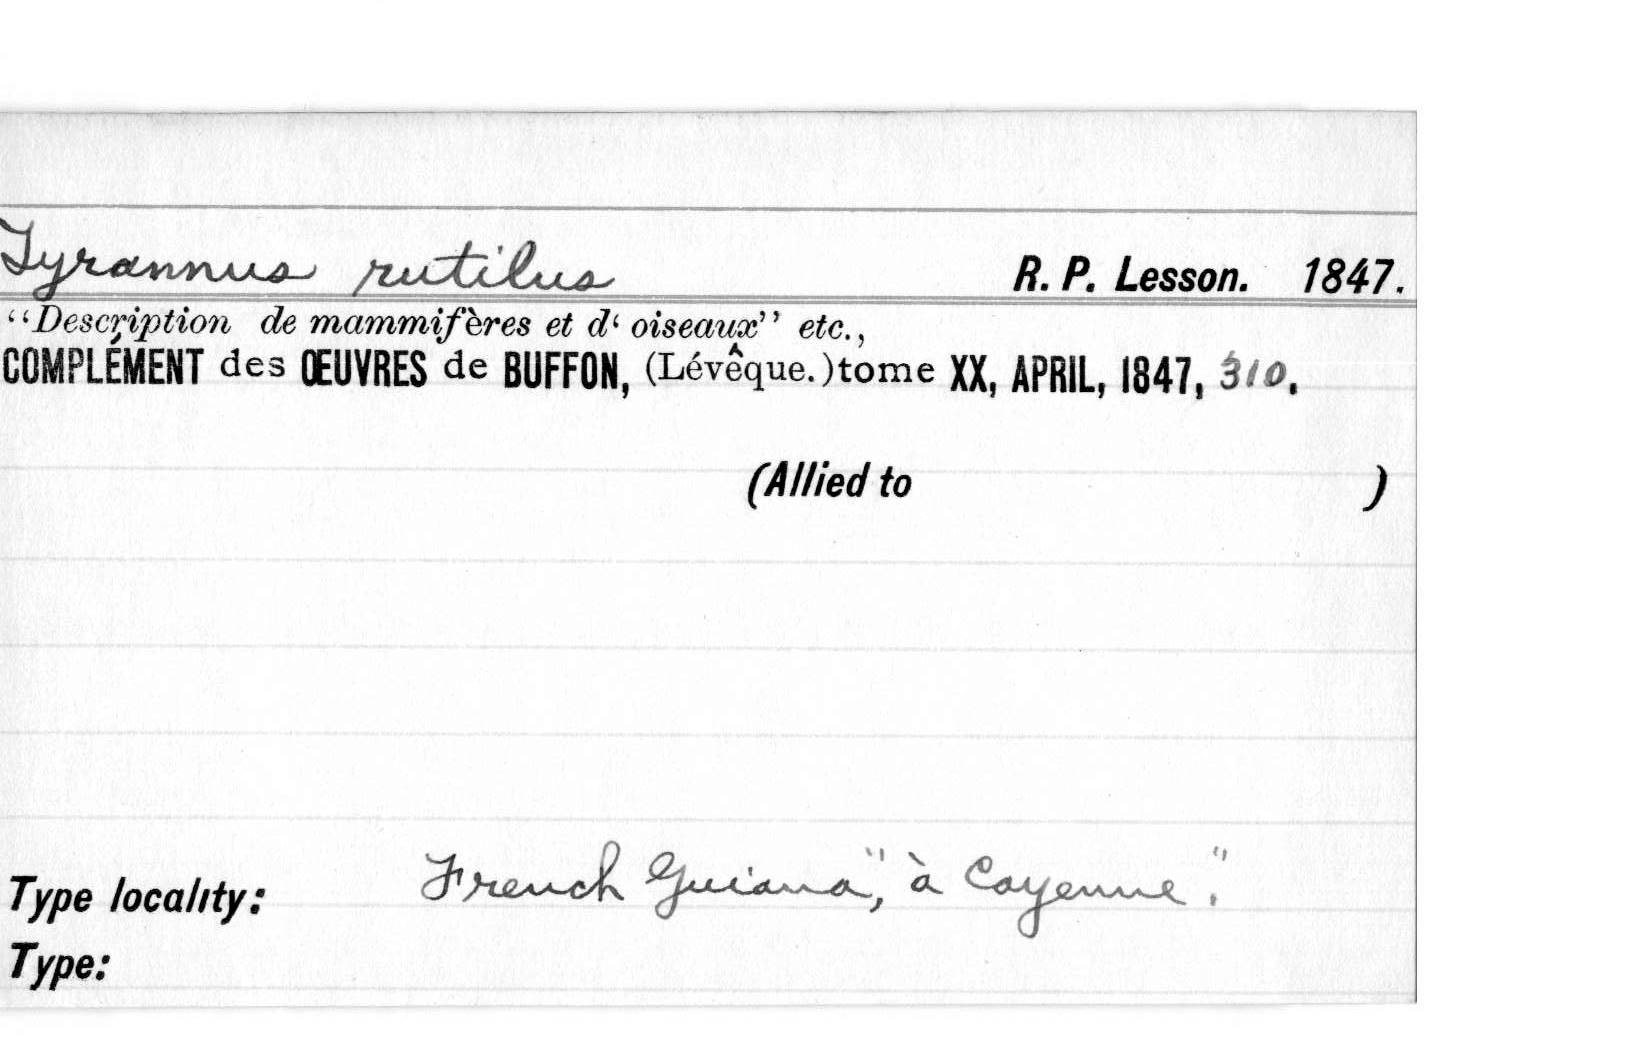 Tyrannus rutilus R. P. Lesson. 1847.
“Description de mammifères et d‘ oiseaux” etc.,
COMPLÉMENT des ŒUVRES de BUFFON, (Lévêque.)tome XX, APRIL, 1847, 310.
(Allied to )
Type locality: French Guiana, "à Cayenne".
Type: